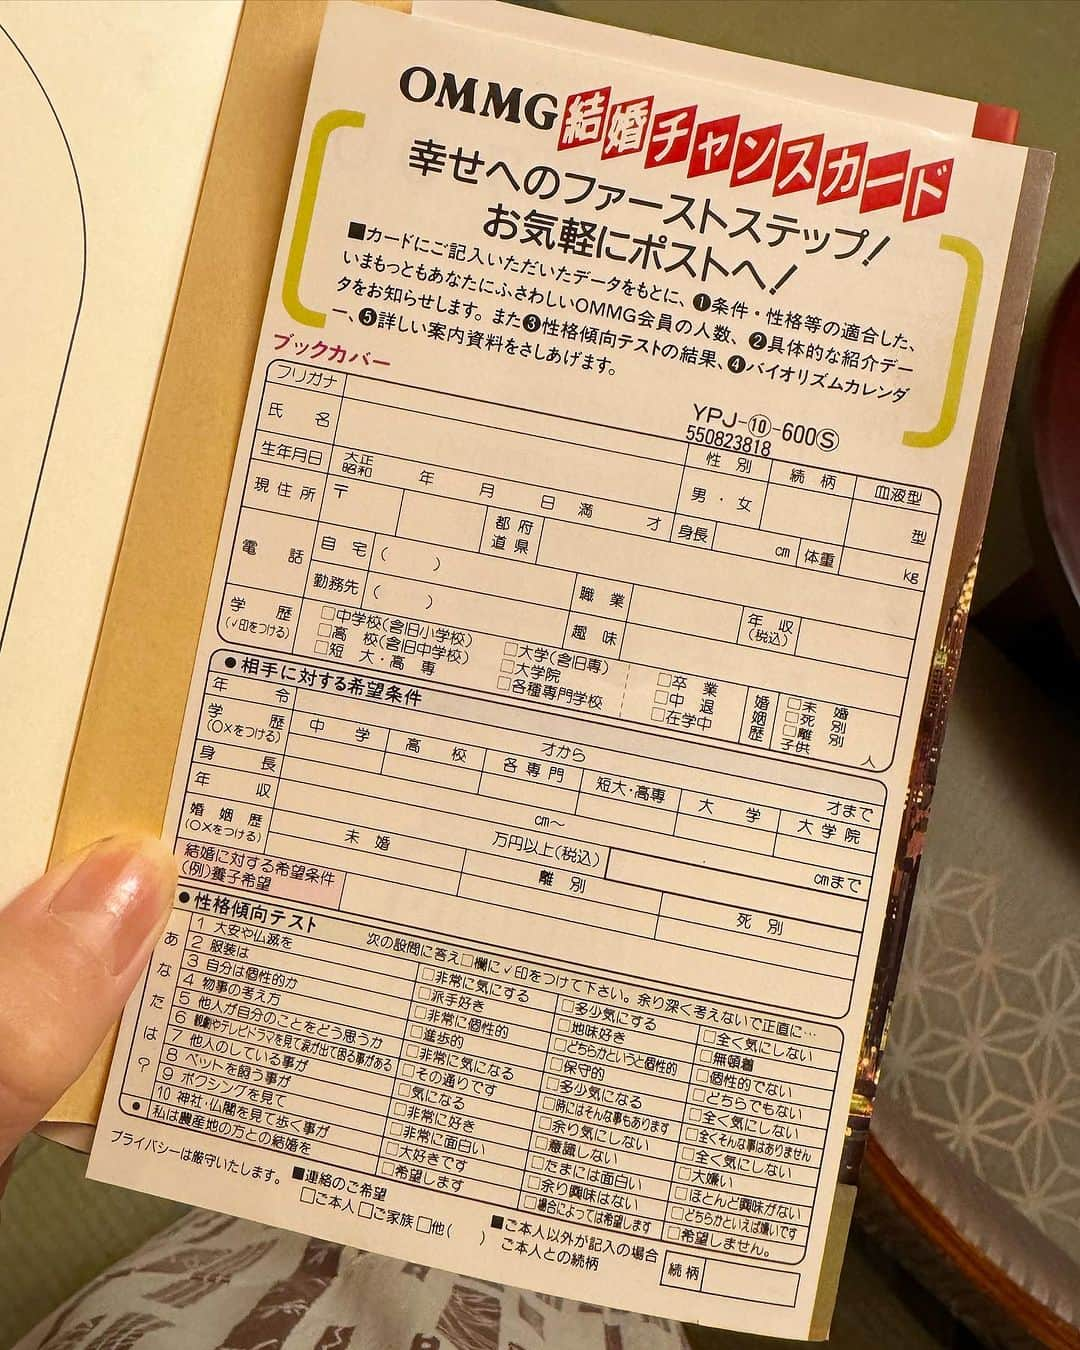 OMMG結婚チャンスカード
幸せへのファーストステップ!
お気軽にポストへ!
■カードにご記入いただいたデータをもとに、❶条件・性格等の適合した、
いまもっともあなたにふさわしいOMMG会員の人数、❷具体的な紹介デー
タをお知らせします。また❸性格傾向テストの結果、❹バイオリズムカレンダ
ー、❺詳しい案内資料をさしあげます。
ブックカバー
YPJ-⑩-600Ⓢ
550823818
フリガナ
氏名 性別 続柄 血液型
男・女 型
生年月日 大正 昭和 年 月 日 満 才 身長 cm 体重 kg
現住所 〒 都府道県
電話 自宅 ( )
勤務先 ( ) 職業 年収(税込)
趣味
学歴(✓印をつける) □中学校(含旧小学校) □大学(含旧専) □卒業 婚姻歴 □未婚
□高校(含旧中学校) □大学院 □中退 □死別
□短大・高専 □各種専門学校 □在学中 □離別
子供 人
●相手に対する希望条件
年令 才から 才まで
学歴(○×をつける) 中学 高校 各専門 短大・高専 大学 大学院
身長 cm〜 cmまで
年収 万円以上(税込)
婚姻歴(○×をつける) 未婚 離別 死別
結婚に対する希望条件
(例)養子希望
●性格傾向テスト 次の設問に答え□欄に✓印をつけて下さい。余り深く考えないで正直に…
あなたは?
1 大安や仏滅を □非常に気にする □多少気にする □全く気にしない
2 服装は □派手好き □地味好き □無頓着
3 自分は個性的か □非常に個性的 □どちらかというと個性的 □個性的でない
4 物事の考え方 □進歩的 □保守的 □どちらでもない
5 他人が自分のことをどう思うか □非常に気になる □多少気になる □全く気にしない
6 観劇やテレビドラマを見て涙が出て困る事がある □その通りです □時にはそんな事もあります □全くそんな事はありません
7 他人のしている事が □気になる □余り気にしない □全く気にしない
8 ペットを飼う事が □非常に好き □意識しない □大嫌い
9 ボクシングを見て □非常に面白い □たまには面白い □ほとんど興味がない
10 神社・仏閣を見て歩く事が □大好きです □余り興味はない □どちらかといえば嫌いです
●私は農産地の方との結婚を □希望します □場合によっては希望します □希望しません。
プライバシーは厳守いたします。
■連絡のご希望
□ご本人 □ご家族 □他( )
■ご本人以外が記入の場合
ご本人との続柄
続柄